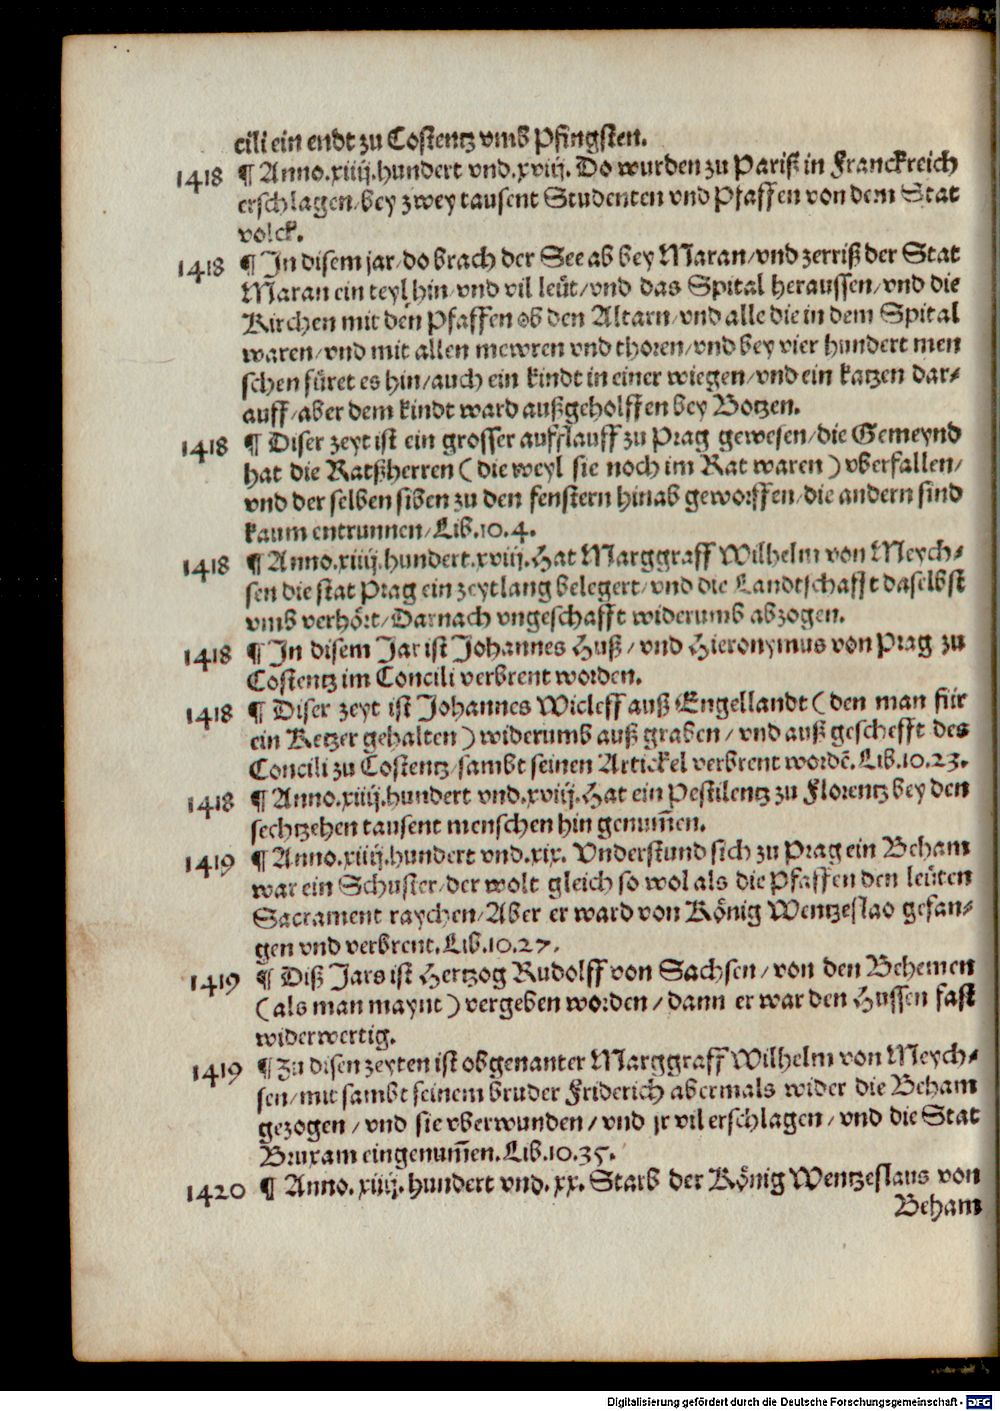 cili ein endt zu Costentz vmb Pfingsten.
1418 ¶ Anno.xiiij.hundert vnd.xviij. Do wurden zu Pariß in Franckreich
erschlagen/bey zwey tausent Studenten vnd Pfaffen von dem Stat
volck.
1418 ¶ In disem jar/do brach der See ab bey Maran/vnd zerriß der Stat
Maran ein teyl hin/vnd vil leüt/vnd das Spital heraussen/vnd die
Kirchen mit den Pfaffen ob den Altarn/vnd alle die in dem Spital
waren/vnd mit allen mewren vnd thoren/vnd bey vier hundert men
schen füret es hin/auch ein kindt in einer wiegen/vnd ein katzen dar⸗
auff/aber dem kindt ward außgeholffen bey Botzen.
1418 ¶ Diser zeyt ist ein grosser aufflauff zu Prag gewesen/die Gemeynd
hat die Ratßherren (die weyl sie noch im Rat waren) vberfallen/
vnd der selben siben zu den fenstern hinab geworffen/die andern sind
kaum entrunnen/Lib.10.4.
1418 ¶ Anno.xiiij.hundert.xviij.Hat Marggraff Wilhelm von Meych⸗
sen die stat Prag ein zeytlang belegert/vnd die Landtschafft daselbst
vmb verhört/Darnach vngeschafft widerumb abzogen.
1418 ¶ In disem Jar ist Johannes Huß/vnd Hieronymus von Prag zu
Costentz im Concili verbrent worden.
1418 ¶ Diser zeyt ist Johannes Wicleff auß Engellandt (den man für
ein Ketzer gehalten) widerumb auß graben/vnd auß geschefft des
Concili zu Costentz/sambt seinen Artickel verbrent wordē.Lib.10.23.
1418 ¶ Anno.xiiij.hundert vnd.xviij.Hat ein Pestilentz zu Florentz bey den
sechtzehen tausent menschen hin genum̄en.
1419 ¶ Anno.xiiij.hundert vnd.xix. Vnderstund sich zu Prag ein Beham
war ein Schuster/der wolt gleich so wol als die Pfaffen den leüten
Sacrament raychen/Aber er ward von König Wentzeslao gefan⸗
gen vnd verbrent.Lib.10.27.
1419 ¶ Diß Jars ist Hertzog Rudolff von Sachsen/von den Behemen
(als man maynt) vergeben worden/dann er war den Hussen fast
widerwertig.
1419 ¶ Zu disen zeyten ist obgenanter Marggraff Wilhelm von Meych⸗
sen/mit sambt seinem bruder Friderich abermals wider die Beham
gezogen/vnd sie vberwunden/vnd jr vil erschlagen/vnd die Stat
Bruxam eingenum̄en.Lib.10.35.
1420 ¶ Anno.xiiij.hundert vnd.xx.Starb der König Wentzeslaus von
Beham
Digitalisierung gefördert durch die Deutsche Forschungsgemeinschaft - DFG